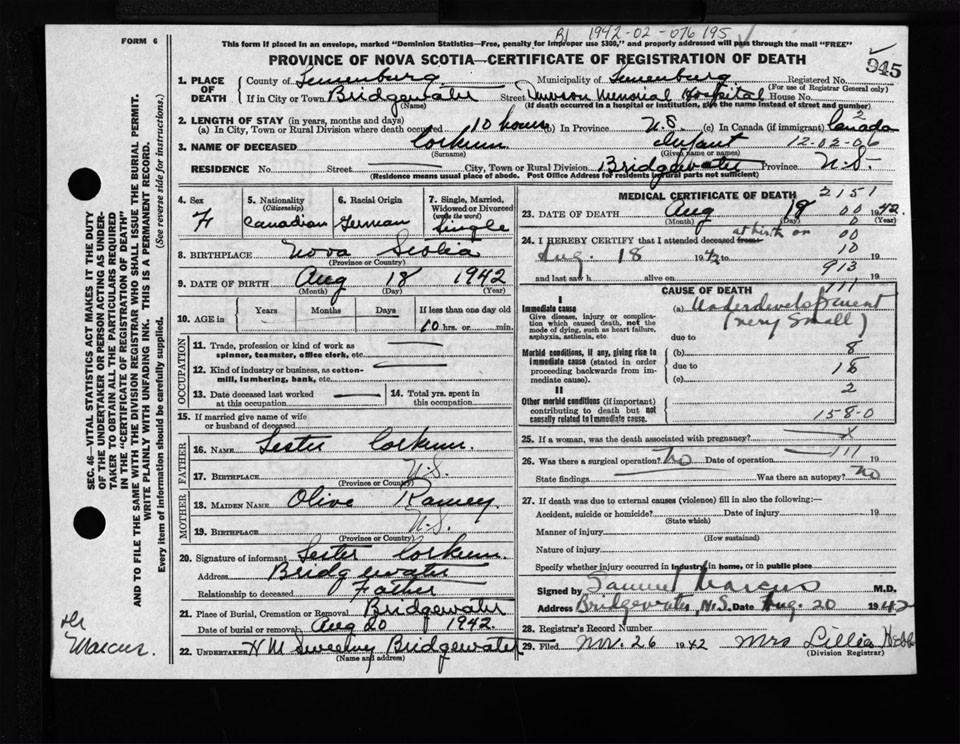 B1 1942-02-076195
FORM 6
This form if placed in an envelope, marked "Dominion Statistics—Free, penalty for improper use $300," and properly addressed will pass through the mail "FREE"
PROVINCE OF NOVA SCOTIA—CERTIFICATE OF REGISTRATION OF DEATH
945
SEC. 46—VITAL STATISTICS ACT MAKES IT THE DUTY
OF THE UNDERTAKER OR PERSON ACTING AS UNDER-
TAKER TO OBTAIN ALL THE PARTICULARS REQUIRED
IN THE "CERTIFICATE OF REGISTRATION OF DEATH"
AND TO FILE THE SAME WITH THE DIVISION REGISTRAR WHO SHALL ISSUE THE BURIAL PERMIT.
WRITE PLAINLY WITH UNFADING INK. THIS IS A PERMANENT RECORD.
Every item of information should be carefully supplied. (See reverse side for instructions.)
1. PLACE OF DEATH County of Lunenburg Municipality of Lunenburg Registered No.
(For use of Registrar General only)
If in City or Town Bridgewater Street Dawson Memorial Hospital House No.
(Name) (If death occurred in a hospital or institution, give the name instead of street and number)
2. LENGTH OF STAY (in years, months and days)
(a) In City, Town or Rural Division where death occurred 10 hours (b) In Province N.S. (c) In Canada (if immigrant) Canada 2
3. NAME OF DECEASED Corkum Infant 12-02-06
(Surname) (Given name or names)
RESIDENCE No. Street City, Town or Rural Division Bridgewater Province N.S.
(Residence means usual place of abode. Post Office Address for residents in rural parts not sufficient)
4. Sex F
5. Nationality (Citizenship) Canadian
6. Racial Origin German
7. Single, Married, Widowed or Divorced (write the word) Single
8. BIRTHPLACE Nova Scotia
(Province or Country)
9. DATE OF BIRTH Aug 18 1942
(Month) (Day) (Year)
10. AGE in Years Months Days If less than one day old
10 hrs. or min.
OCCUPATION
11. Trade, profession or kind of work as spinner, teamster, office clerk, etc.
12. Kind of industry or business, as cotton-mill, lumbering, bank, etc.
13. Date deceased last worked at this occupation
14. Total yrs. spent in this occupation
15. If married give name of wife or husband of deceased
FATHER
16. NAME Lester Corkum
17. BIRTHPLACE N.S.
(Province or Country)
MOTHER
18. MAIDEN NAME Olive Ramey
19. BIRTHPLACE N.S.
(Province or Country)
20. Signature of informant Lester Corkum.
Address Bridgewater
Relationship to deceased Father
21. Place of Burial, Cremation or Removal Bridgewater
Date of burial or removal Aug 20 1942.
22. UNDERTAKER H M Sweeney Bridgewater
(Name and address)
Dr
Marcus.
MEDICAL CERTIFICATE OF DEATH 2151
23. DATE OF DEATH Aug 18 00 1942
(Month) (Day) (Year)
24. I HEREBY CERTIFY that I attended deceased from at birth on 00
Aug. 18 1942 to 10 19
and last saw h alive on 913 19
CAUSE OF DEATH 111
I
Immediate cause
Give disease, injury or complication which caused death, not the mode of dying, such as heart failure, asphyxia, asthenia, etc.
(a) Underdevelopment
(very small)
due to
Morbid conditions, if any, giving rise to immediate cause (stated in order proceeding backwards from immediate cause).
(b) 8
due to 18
(c)
II 2
Other morbid conditions (if important) contributing to death but not causally related to immediate cause.
158-0
25. If a woman, was the death associated with pregnancy? x
26. Was there a surgical operation? no Date of operation 111 19
State findings Was there an autopsy? no
27. If death was due to external causes (violence) fill in also the following:—
Accident, suicide or homicide? Date of injury 19
(State which)
Manner of injury
(How sustained)
Nature of injury
Specify whether injury occurred in industry, in home, or in public place
Signed by Samuel Marcus M.D.
Address Bridgewater, N.S. Date Aug. 20 1942
28. Registrar's Record Number
29. Filed Nov. 26 1942 Mrs Lillia
(Division Registrar)